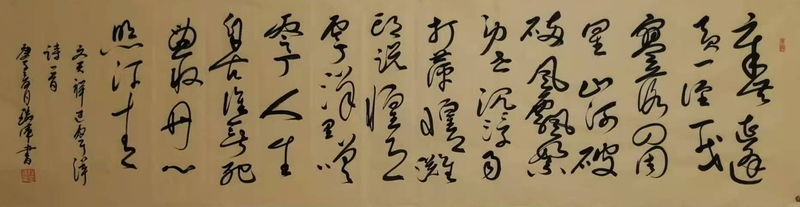 辛苦遭逢
起一经干戈
寥落四周
星山河破
碎风飘絮
身世沉浮雨
打萍惶恐滩
头说惶恐
零丁洋里叹
零丁人生
自古谁无死
留取丹心
照汗青
文天祥过零丁洋
诗一首
庚子